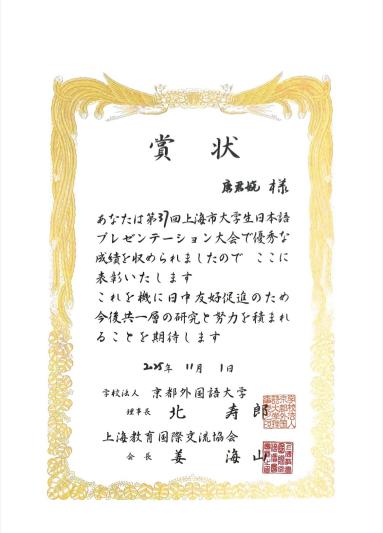 賞 状
様
あなたは第37回上海市大学生日本語
プレゼンテーション大会で優秀な
成績を収められましたので ここに
表彰いたします
これを機に日中友好促進のため
今後共一層の研究と努力を積まれ
ることを期待します
2025年 11月 1日
学校法人 京都外国語大学
理事長 北 寿郎
上海教育国際交流協会
会長 姜 海山